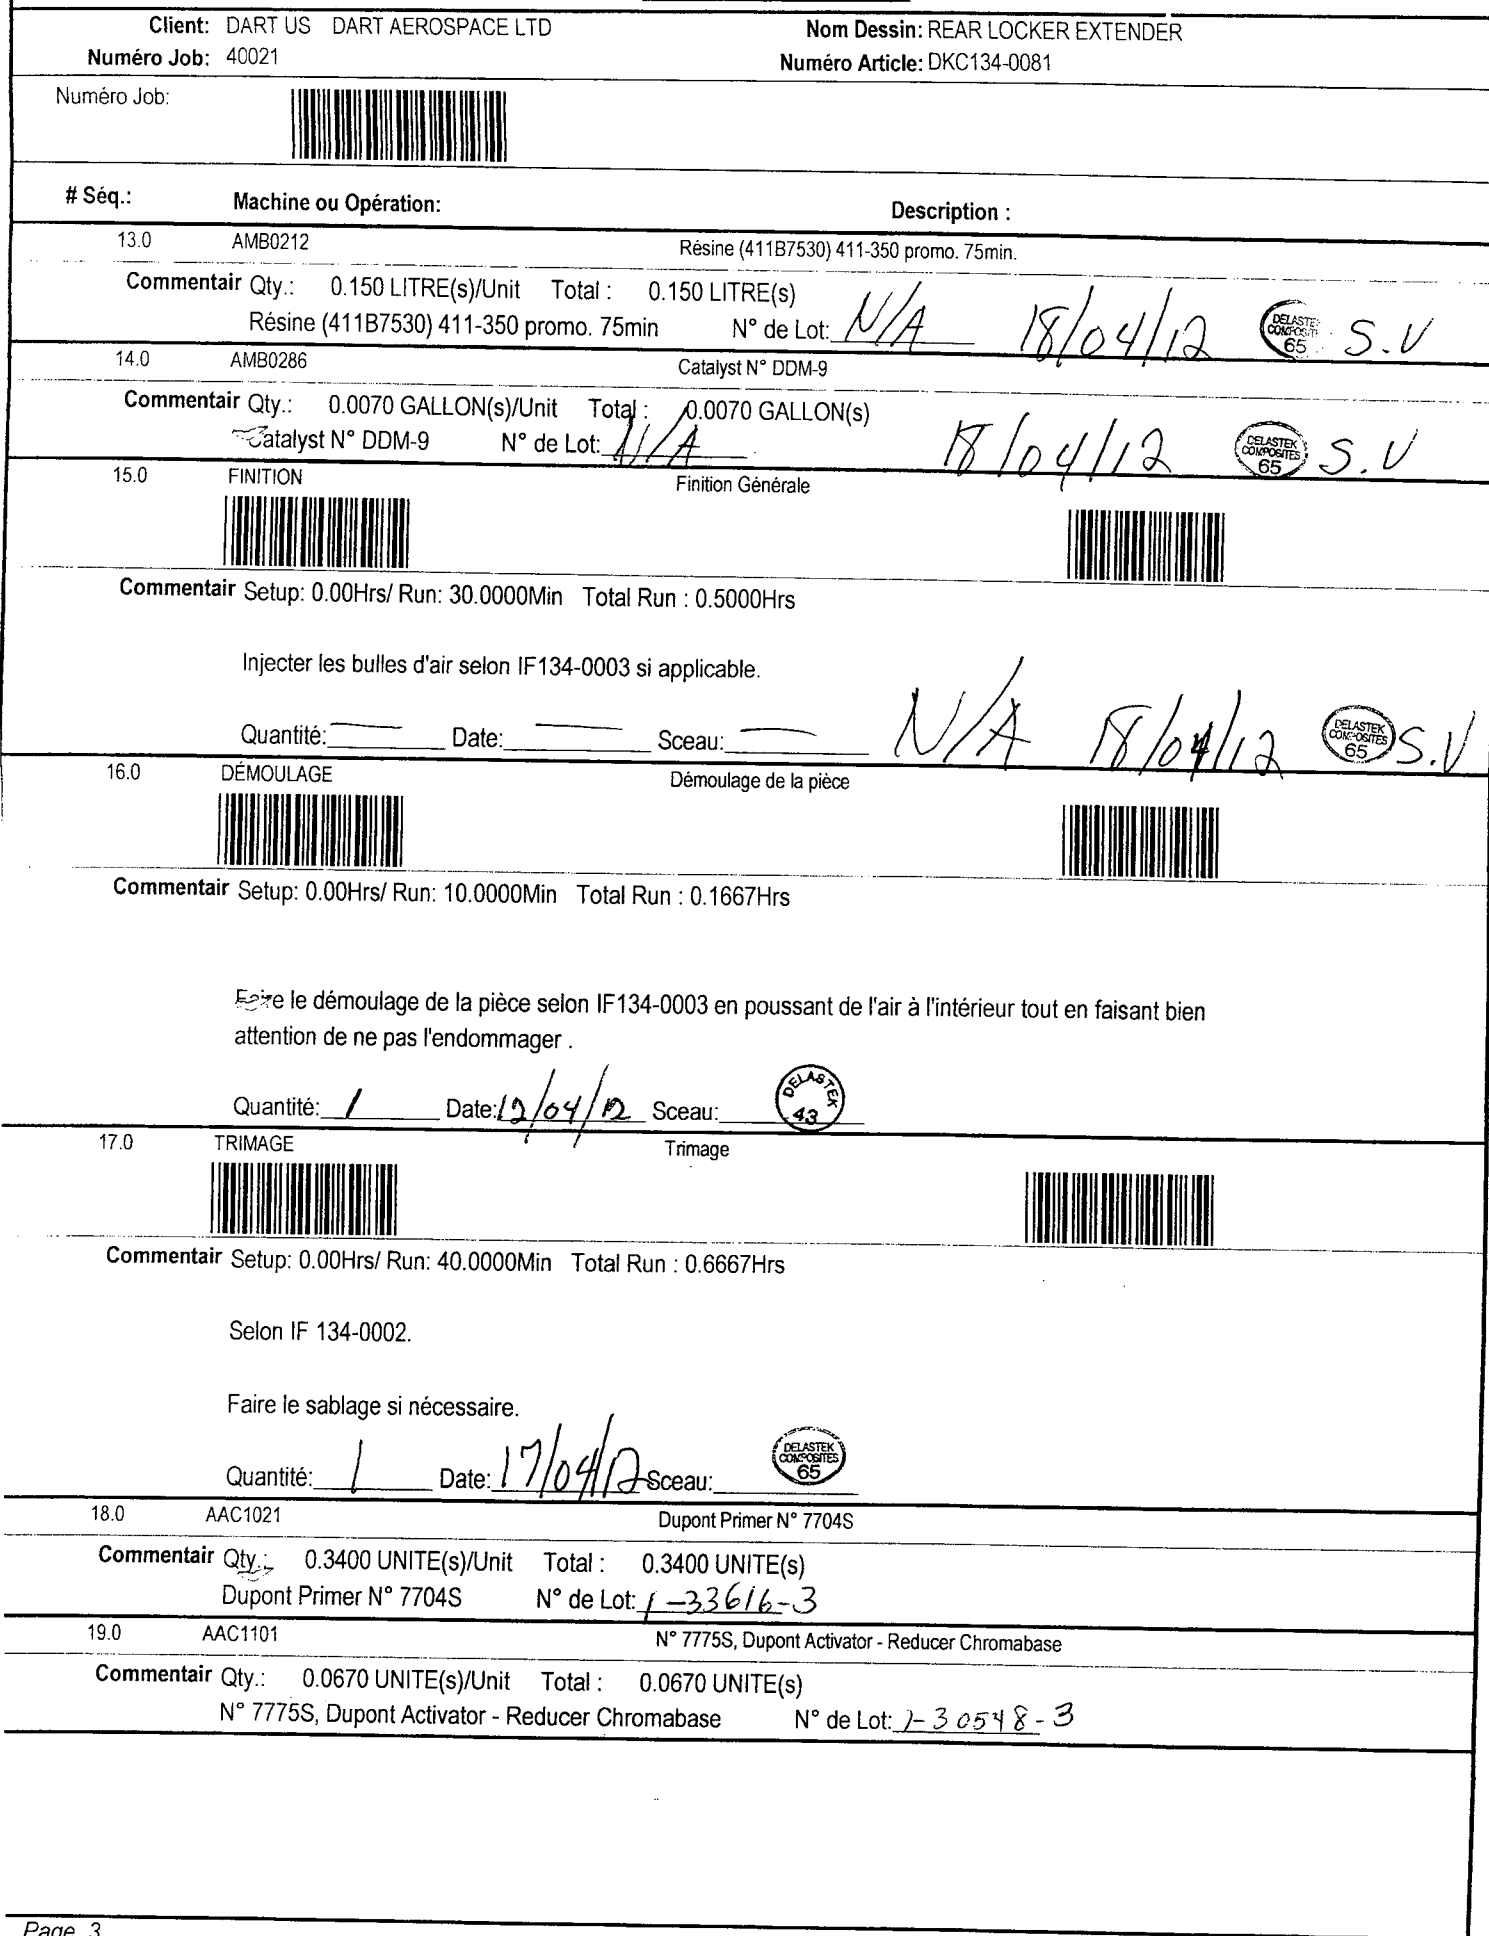 Client: DART US DART AEROSPACE LTD Nom Dessin: REAR LOCKER EXTENDER
Numéro Job: 40021 Numéro Article: DKC134-0081
Numéro Job:
# Séq.: Machine ou Opération: Description :
13.0 AMB0212 Résine (411B7530) 411-350 promo. 75min.
Commentair Qty.: 0.150 LITRE(s)/Unit Total : 0.150 LITRE(s)
Résine (411B7530) 411-350 promo. 75min N° de Lot: N/A 18/04/12 DELASTEK COMPOSITES 65 S.V
14.0 AMB0286 Catalyst N° DDM-9
Commentair Qty.: 0.0070 GALLON(s)/Unit Total : 0.0070 GALLON(s)
Catalyst N° DDM-9 N° de Lot: N/A 18/04/12 DELASTEK COMPOSITES 65 S.V
15.0 FINITION Finition Générale
Commentair Setup: 0.00Hrs/ Run: 30.0000Min Total Run : 0.5000Hrs
Injecter les bulles d'air selon IF134-0003 si applicable.
Quantité: — Date: — Sceau: — N/A 18/04/12 DELASTEK COMPOSITES 65 S.V
16.0 DÉMOULAGE Démoulage de la pièce
Commentair Setup: 0.00Hrs/ Run: 10.0000Min Total Run : 0.1667Hrs
Faire le démoulage de la pièce selon IF134-0003 en poussant de l'air à l'intérieur tout en faisant bien
attention de ne pas l'endommager .
Quantité: 1 Date: 12/04/12 Sceau: DELASTEK 43
17.0 TRIMAGE Trimage
Commentair Setup: 0.00Hrs/ Run: 40.0000Min Total Run : 0.6667Hrs
Selon IF 134-0002.
Faire le sablage si nécessaire.
Quantité: 1 Date: 17/04/12 Sceau: DELASTEK COMPOSITES 65
18.0 AAC1021 Dupont Primer N° 7704S
Commentair Qty.: 0.3400 UNITE(s)/Unit Total : 0.3400 UNITE(s)
Dupont Primer N° 7704S N° de Lot: 1-33616-3
19.0 AAC1101 N° 7775S, Dupont Activator - Reducer Chromabase
Commentair Qty.: 0.0670 UNITE(s)/Unit Total : 0.0670 UNITE(s)
N° 7775S, Dupont Activator - Reducer Chromabase N° de Lot: 1-30548-3
Page 3